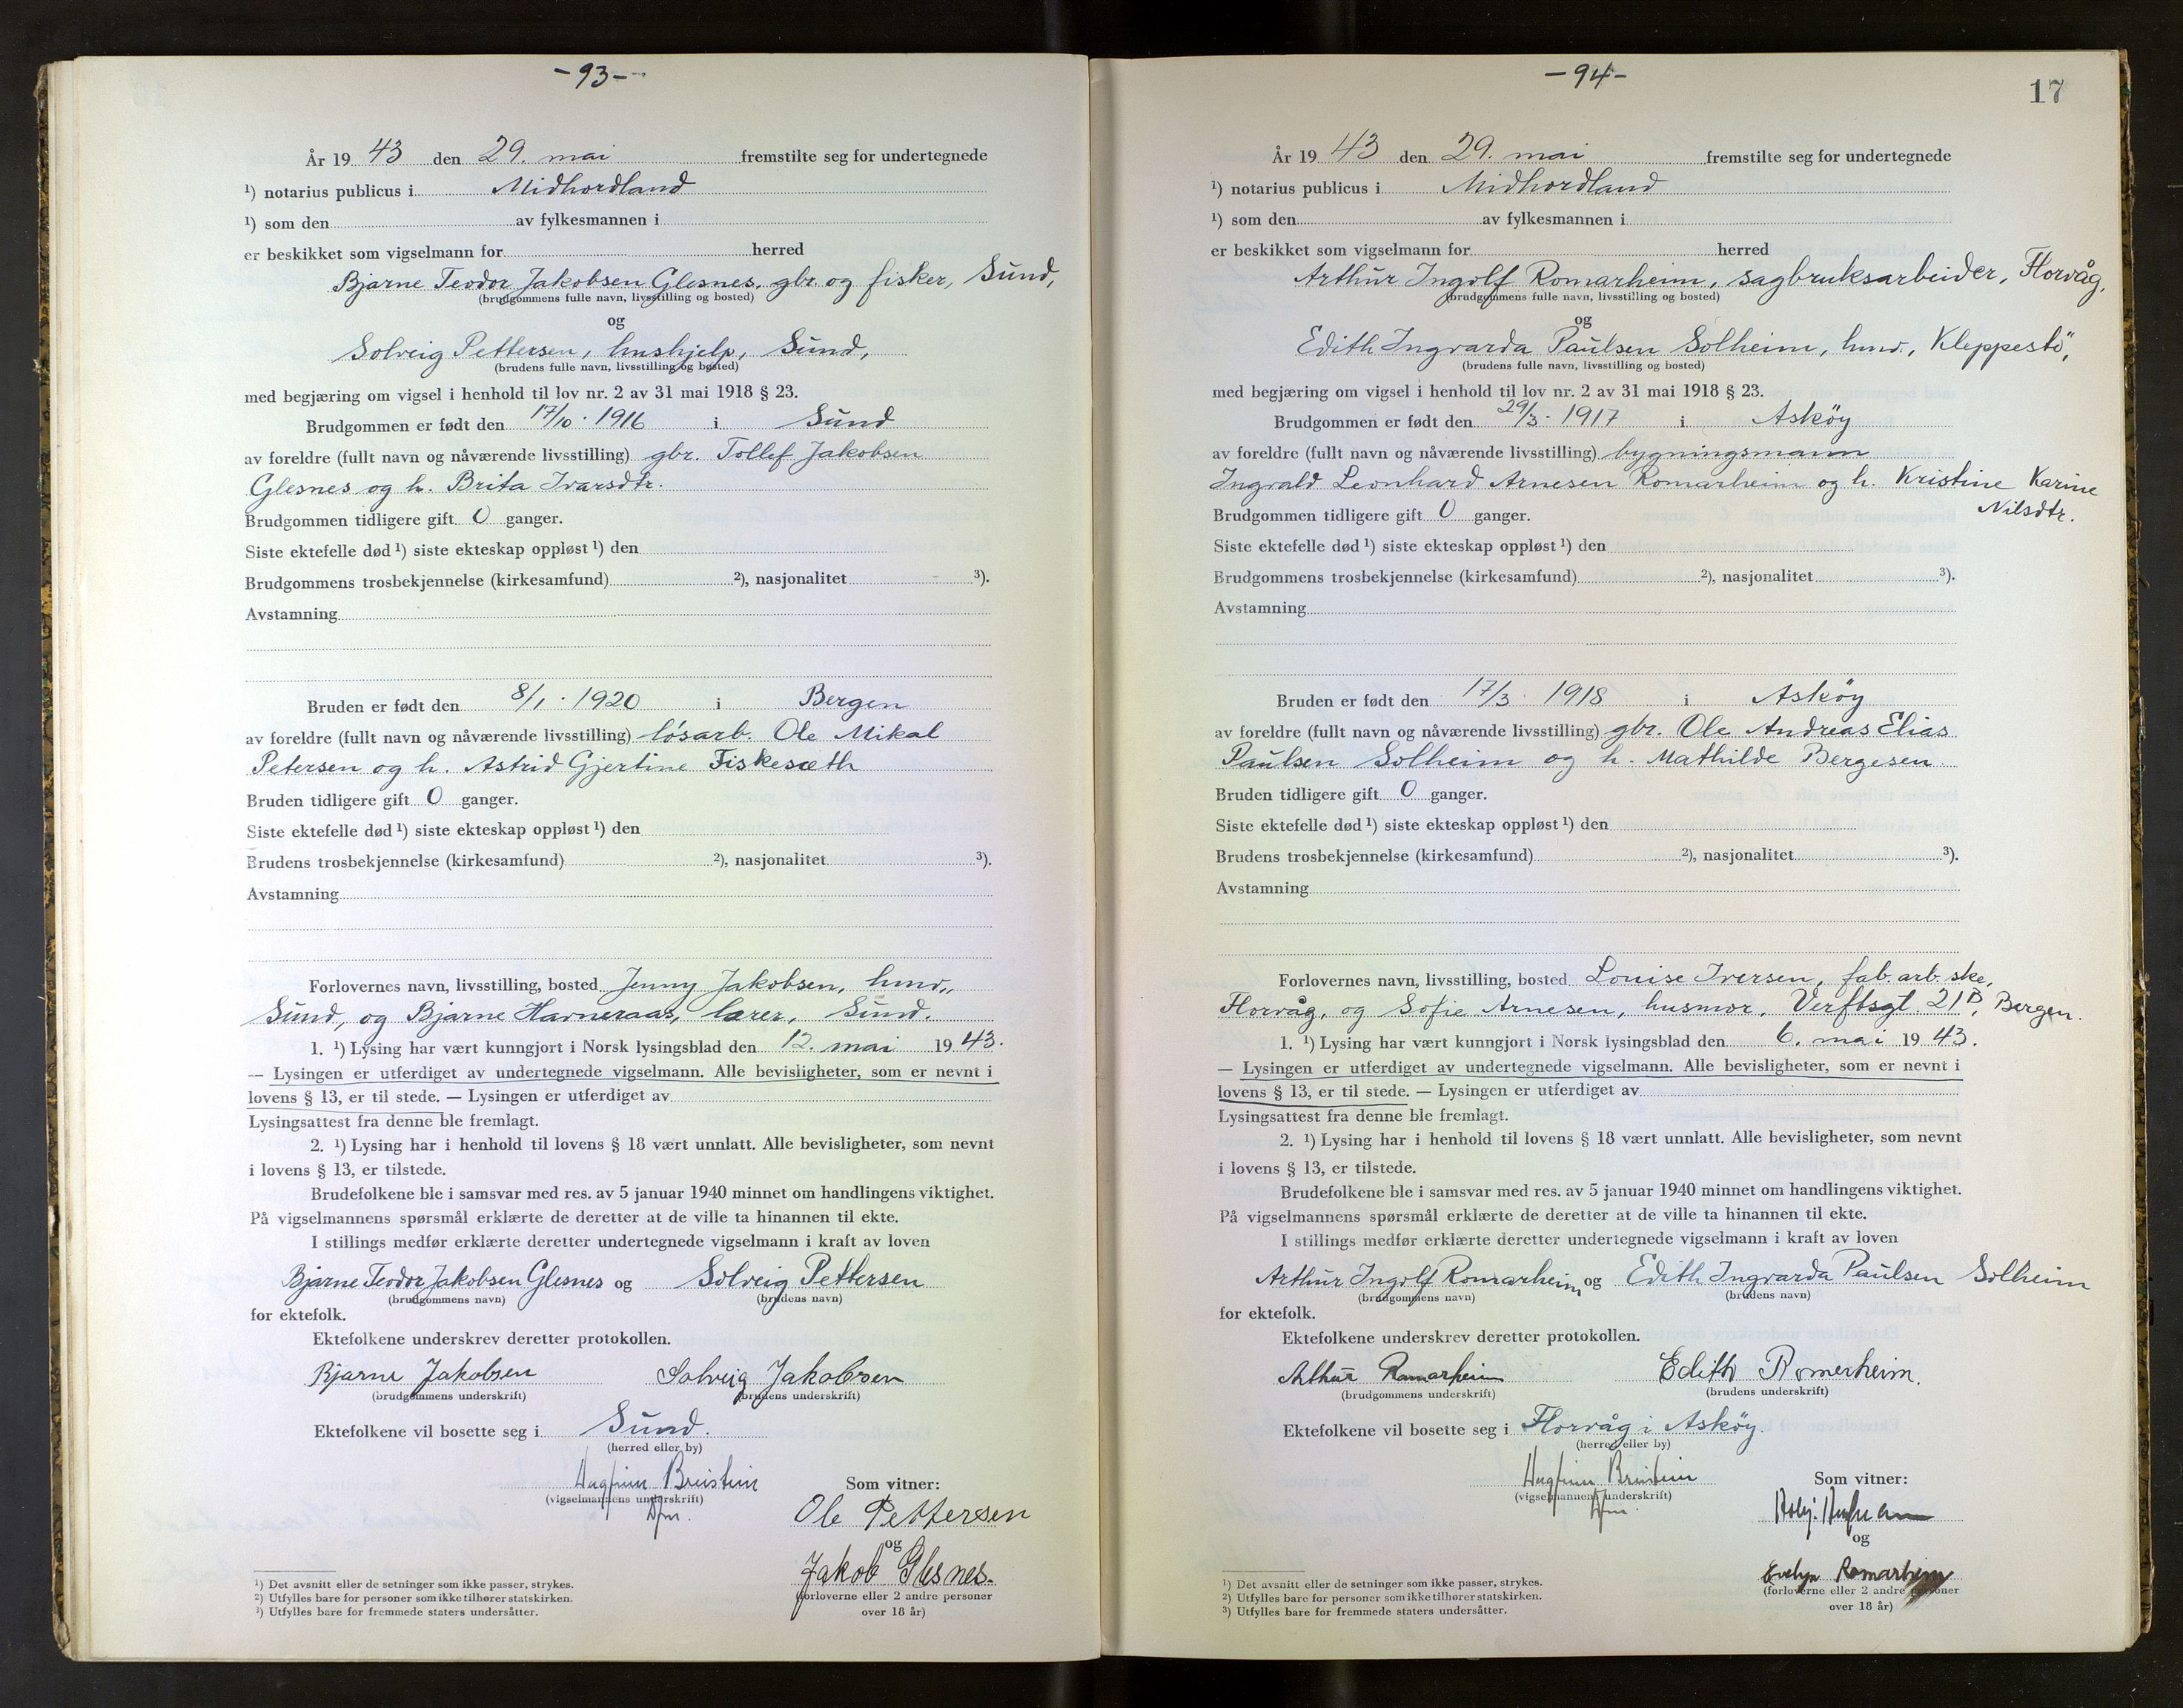 -93-
År 19 43 den 29. mai fremstilte seg for undertegnede
¹) notarius publicus i Midhordland
¹) som den av fylkesmannen i
er beskikket som vigselmann for herred
Bjarne Teodor Jakobsen Glesnes, gbr. og fisker, Sund,
(brudgommens fulle navn, livsstilling og bosted)
og
Solveig Pettersen, hushjelp, Sund,
(brudens fulle navn, livsstilling og bosted)
med begjæring om vigsel i henhold til lov nr. 2 av 31 mai 1918 § 23.
Brudgommen er født den 17/10. 1916 i Sund
av foreldre (fullt navn og nåværende livsstilling) gbr. Tollef Jakobsen
Glesnes og h. Brita Ivarsdtr.
Brudgommen tidligere gift 0 ganger.
Siste ektefelle død ¹) siste ekteskap oppløst ¹) den
Brudgommens trosbekjennelse (kirkesamfund) ²), nasjonalitet ³).
Avstamning
Bruden er født den 8/1. 1920 i Bergen
av foreldre (fullt navn og nåværende livsstilling) løsarb. Ole Mikal
Petersen og h. Astrid Gjertine Fiskesæth
Bruden tidligere gift 0 ganger.
Siste ektefelle død ¹) siste ekteskap oppløst ¹) den
Brudens trosbekjennelse (kirkesamfund) ²), nasjonalitet ³).
Avstamning
Forlovernes navn, livsstilling, bosted Jenny Jakobsen, hmv.,
Sund, og Bjarne Havneraas, lærer, Sund.
1. ¹) Lysing har vært kunngjort i Norsk lysingsblad den 12. mai 19 43.
— Lysingen er utferdiget av undertegnede vigselmann. Alle bevisligheter, som er nevnt i
lovens § 13, er til stede. — Lysingen er utferdiget av
Lysingsattest fra denne ble fremlagt.
2. ¹) Lysing har i henhold til lovens § 18 vært unnlatt. Alle bevisligheter, som nevnt
i lovens § 13, er tilstede.
Brudefolkene ble i samsvar med res. av 5 januar 1940 minnet om handlingens viktighet.
På vigselmannens spørsmål erklærte de deretter at de ville ta hinannen til ekte.
I stillings medfør erklærte deretter undertegnede vigselmann i kraft av loven
Bjarne Teodor Jakobsen Glesnes og Solveig Pettersen
(brudgommens navn) (brudens navn)
for ektefolk.
Ektefolkene underskrev deretter protokollen.
Bjarne Jakobsen Solveig Jakobsen
(brudgommens underskrift) (brudens underskrift)
Ektefolkene vil bosette seg i Sund.
(herred eller by)
Hagfinn Breistein
(vigselmannens underskrift)
Dfm.
Som vitner:
Ole Pettersen
og
Jakob Glesnes.
(forloverne eller 2 andre personer
over 18 år)
¹) Det avsnitt eller de setninger som ikke passer, strykes.
²) Utfylles bare for personer som ikke tilhører statskirken.
³) Utfylles bare for fremmede staters undersåtter.
-94-
17
År 19 43 den 29. mai fremstilte seg for undertegnede
¹) notarius publicus i Midhordland
¹) som den av fylkesmannen i
er beskikket som vigselmann for herred
Arthur Ingolf Romarheim, sagbruksarbeider, Florvåg,
(brudgommens fulle navn, livsstilling og bosted)
og
Edith Ingvarda Paulsen Solheim, hmv., Kleppestö,
(brudens fulle navn, livsstilling og bosted)
med begjæring om vigsel i henhold til lov nr. 2 av 31 mai 1918 § 23.
Brudgommen er født den 29/3. 1917 i Asköy
av foreldre (fullt navn og nåværende livsstilling) bygningsmann
Ingvald Leonhard Arnesen Romarheim og h. Kristine Karine
Nilsdtr.
Brudgommen tidligere gift 0 ganger.
Siste ektefelle død ¹) siste ekteskap oppløst ¹) den
Brudgommens trosbekjennelse (kirkesamfund) ²), nasjonalitet ³).
Avstamning
Bruden er født den 17/3. 1918 i Asköy
av foreldre (fullt navn og nåværende livsstilling) gbr. Ole Andreas Elias
Paulsen Solheim og h. Mathilde Bergesen
Bruden tidligere gift 0 ganger.
Siste ektefelle død ¹) siste ekteskap oppløst ¹) den
Brudens trosbekjennelse (kirkesamfund) ²), nasjonalitet ³).
Avstamning
Forlovernes navn, livsstilling, bosted Louise Iversen, fab.arb.ske,
Florvåg, og Sofie Arnesen, husmor, Verftsgt. 21B, Bergen.
1. ¹) Lysing har vært kunngjort i Norsk lysingsblad den 6. mai 19 43.
— Lysingen er utferdiget av undertegnede vigselmann. Alle bevisligheter, som er nevnt i
lovens § 13, er til stede. — Lysingen er utferdiget av
Lysingsattest fra denne ble fremlagt.
2. ¹) Lysing har i henhold til lovens § 18 vært unnlatt. Alle bevisligheter, som nevnt
i lovens § 13, er tilstede.
Brudefolkene ble i samsvar med res. av 5 januar 1940 minnet om handlingens viktighet.
På vigselmannens spørsmål erklærte de deretter at de ville ta hinannen til ekte.
I stillings medfør erklærte deretter undertegnede vigselmann i kraft av loven
Arthur Ingolf Romarheim og Edith Ingvarda Paulsen Solheim
(brudgommens navn) (brudens navn)
for ektefolk.
Ektefolkene underskrev deretter protokollen.
Arthur Romarheim Edith Romerheim.
(brudgommens underskrift) (brudens underskrift)
Ektefolkene vil bosette seg i Florvåg i Asköy.
(herred eller by)
Hagfinn Breistein
(vigselmannens underskrift)
Dfm
Som vitner:
og
Evelyn Romarheim
(forloverne eller 2 andre personer
over 18 år)
¹) Det avsnitt eller de setninger som ikke passer, strykes.
²) Utfylles bare for personer som ikke tilhører statskirken.
³) Utfylles bare for fremmede staters undersåtter.